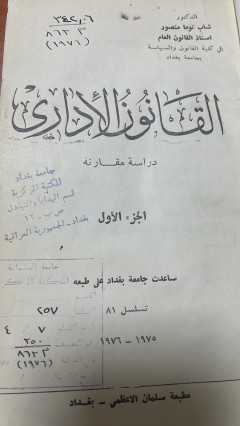 ٣٤٢,٠٦
٨٦٢٣
(١٩٧٦)
الدكتور
شاب توما منصور
استاذ القانون العام
في كلية القانون والسياسة
بجامعة بغداد
القانون الإداري
دراسة مقارنة
جامعة بغداد
المكتبة المركزية
قسم الهدايا والتبادل
ص.ب - ١٢
بغداد - الجمهورية العراقية
الجزء الأول
ساعدت جامعة بغداد على طبعه
تسلسل ٨١
٢٥٧
٤ / ٧
١٩٧٥ - ١٩٧٦
٢٥٠
٨٦٢٣
(١٩٧٦)
مطبعة سلمان الاعظمي - بغداد